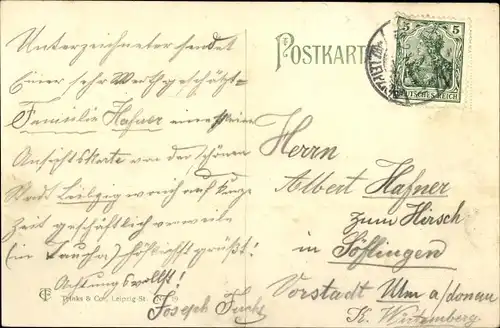 Unterzeichneter sendet
Einer sehr Werthgeschätzt=
Familie Hafner eine kleine
Ansichtskarte von der schönen
Stadt Leipzig wo ich auf kurze
Zeit geschäftlich verweile
(in Taucha) höflichst grüßt!
Achtungsvollst!
Joseph Fuchs
Trinks & Co., Leipzig St.
POSTKARTE
5 5
DEUTSCHES REICH
LEIPZIG
Herrn
Albert Hafner
zum Hirsch
in Söflingen
Vorstadt Ulm a/donau
K. Würtemberg.